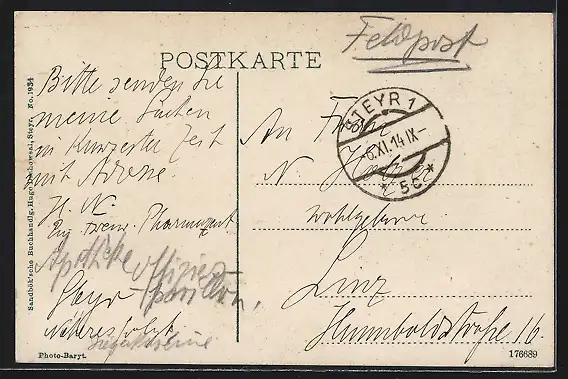 Feldpost
POSTKARTE
Bitte senden Sie
meine Sachen
in kürzester Zeit
mit Adresse
H. N.
Pharmazeut
Apotheke Offiziers-
Steyr pavillon,
Näheres folgt
STEYR 1
6.XI.14 IX-
* 5c *
An Frau
N.
Wohlgeboren
Linz
Humboldstraße 16.
Sandbök'sche Buchhandlg. Hugo Steyr. No. 1934
Photo-Baryt.
176689